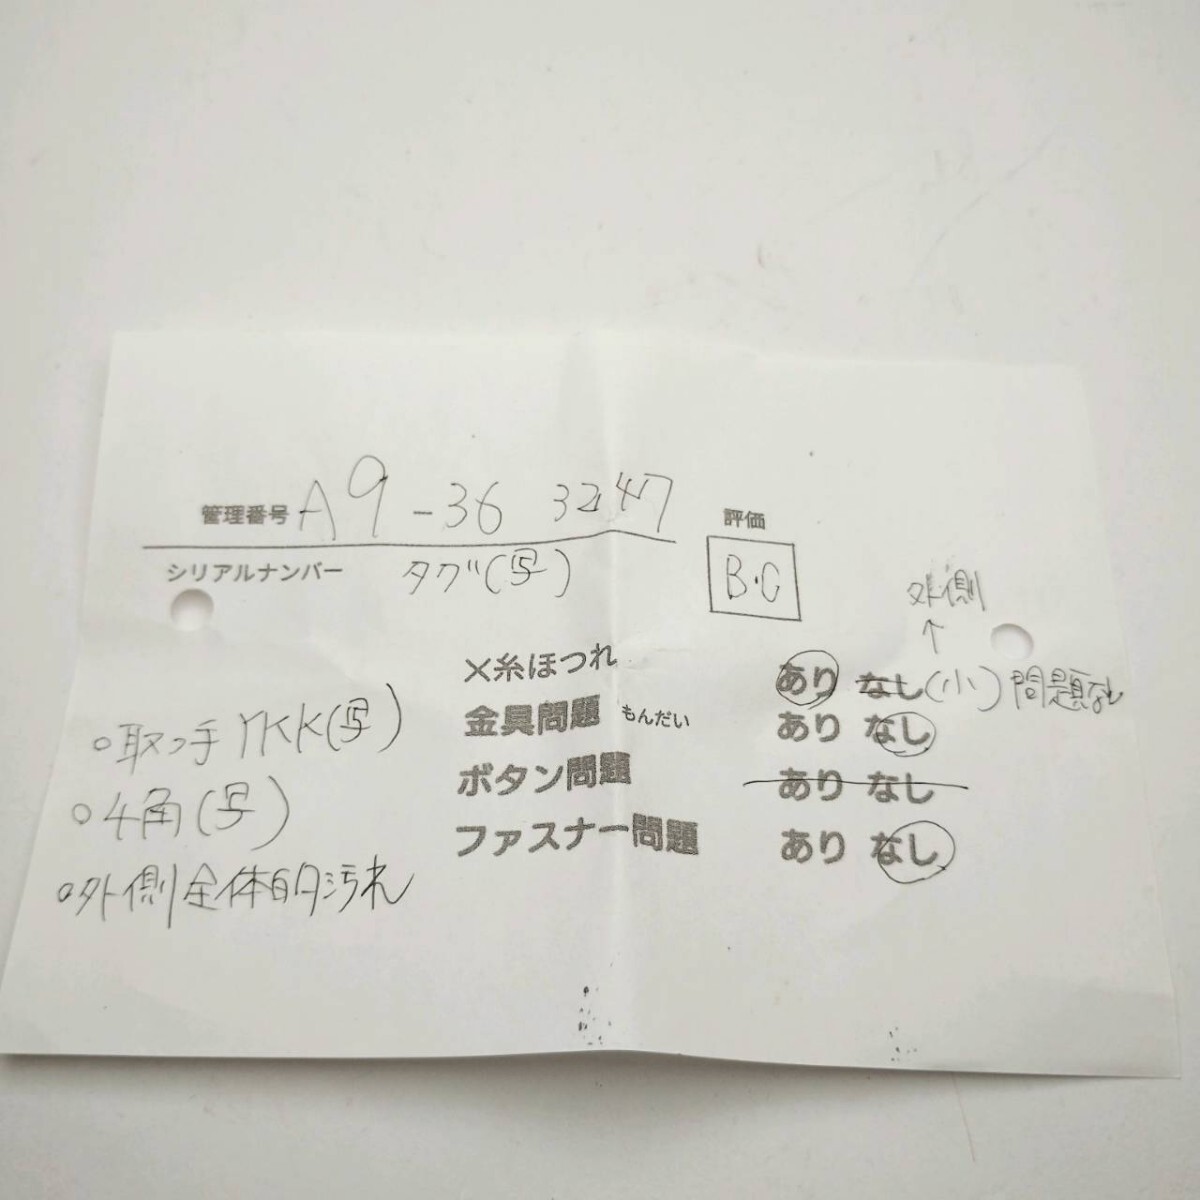 管理番号 A9-36 3247
評価
シリアルナンバー タグ(写)
B・C
外側
↑
×糸ほつれ あり なし(小)問題なし
金具問題 もんだい あり なし
ボタン問題 あり なし
ファスナー問題 あり なし
○取っ手YKK(写)
○4角(写)
○外側全体的汚れ